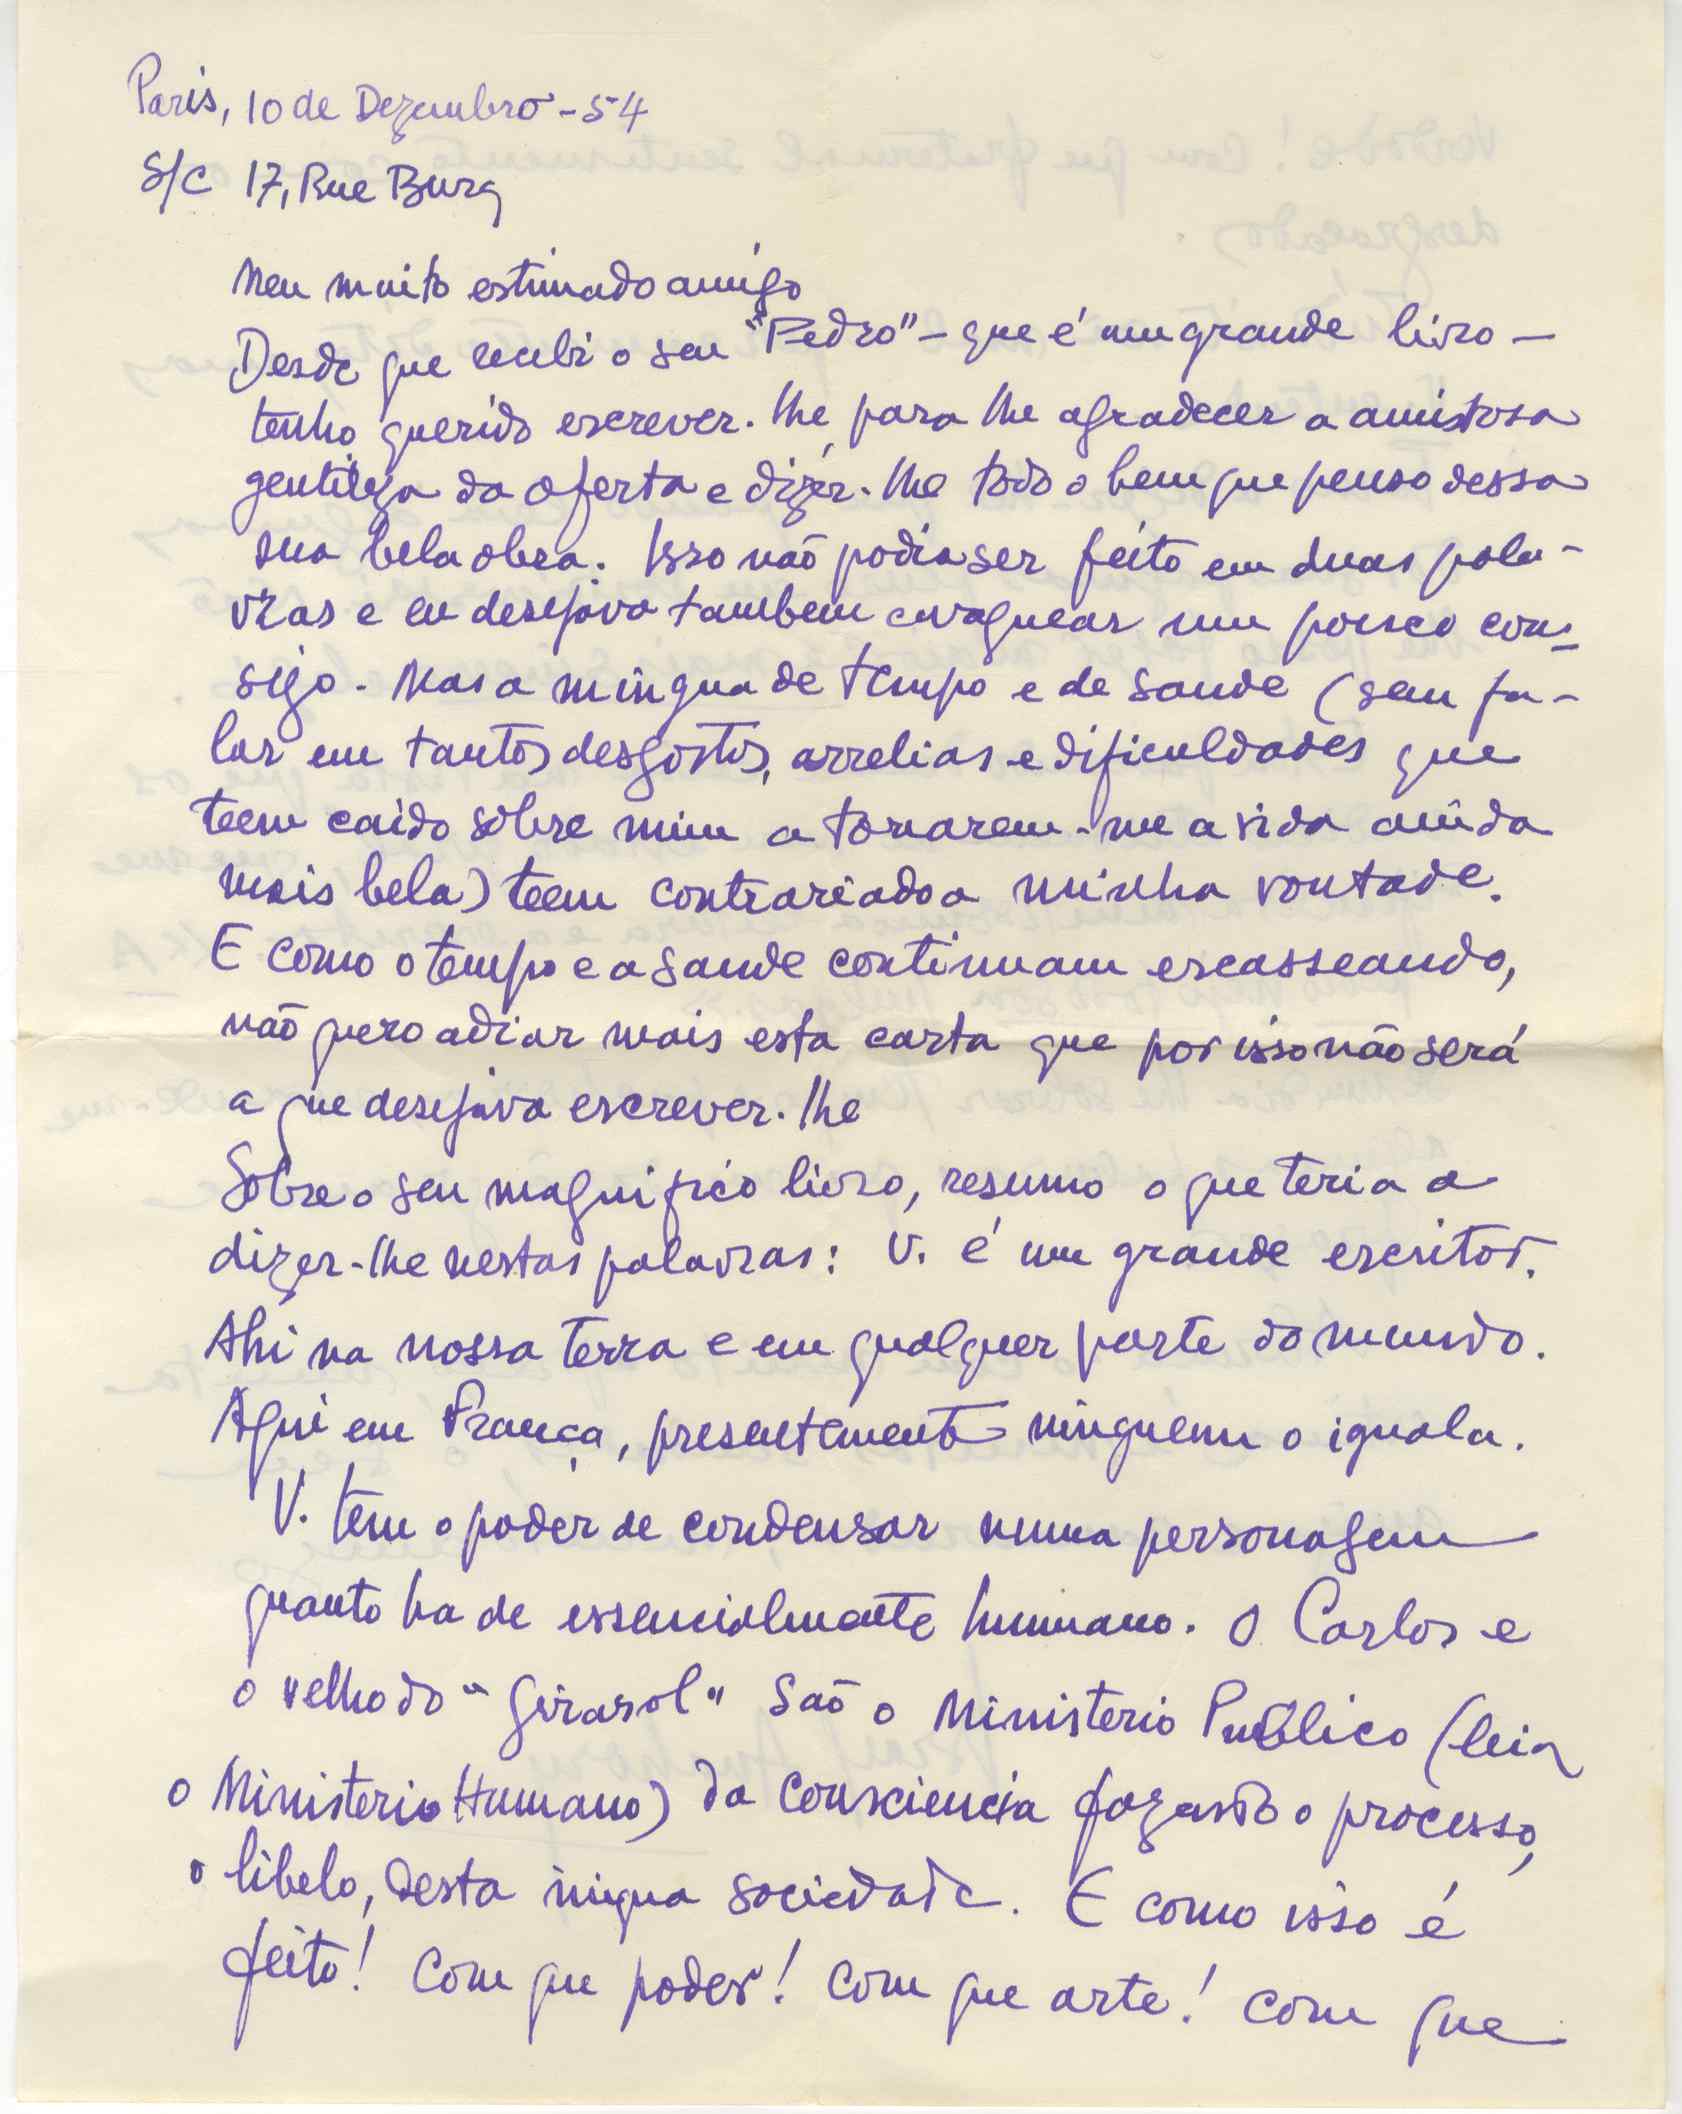 Paris, 10 de Dezembro - 54
S/C 17, Rue Burq
Meu muito estimado amigo
Desde que recebi o seu "Pedro" - que é um grande livro -
tenho querido escrever-lhe para lhe agradecer a amistosa
gentileza da oferta e dizer-lhe todo o bem que penso dessa
sua bela obra. Isso não podia ser feito em duas pala-
vras e eu desejava tambem cavaquear um pouco con-
sigo. Mas a mingua de tempo e de saude (sem fa-
lar em tantos desgostos, arrelias e dificuldades que
teem caido sôbre mim a tornarem-me a vida ainda
mais bela) teem contrariado a minha vontade.
E como o tempo e a saude continuam escasseando,
não quero adiar mais esta carta que por isso não será
a que desejava escrever-lhe
Sobre o seu magnifico livro, resumo o que teria a
dizer-lhe nestas palavras: V. é um grande escritor.
Ahi na nossa terra e em qualquer parte do mundo.
Aqui em França, presentemente ninguem o iguala.
V. tem o poder de condensar numa personagem
quanto ha de essencialmente humano. O Carlos e
o velho do "Girasol" são o Ministerio Publico (leia
o Ministerio Humano) da Consciencia fazendo o processo,
o libelo, desta iniqua sociedade. E como isso é
feito! Com que poder! Com que arte! Com que